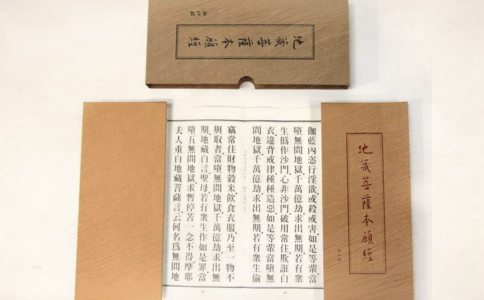 地藏菩薩本願經
地藏菩薩本願經
伽藍內恣行淫欲或殺或害如是等輩當
墮無間地獄千萬億劫求出無期若有衆
生僞作沙門心非沙門破用常住欺誑白
衣違背戒律種種造惡如是等輩當墮無
間地獄千萬億劫求出無期若有衆生偷
竊常住財物穀米飲食衣服乃至一物不
與取者當墮無間地獄千萬億劫求出無
期地藏白言聖母若有衆生作如是罪當
墮五無間地獄求暫停苦一念不得摩耶
夫人重白地藏菩薩言云何名爲無間地